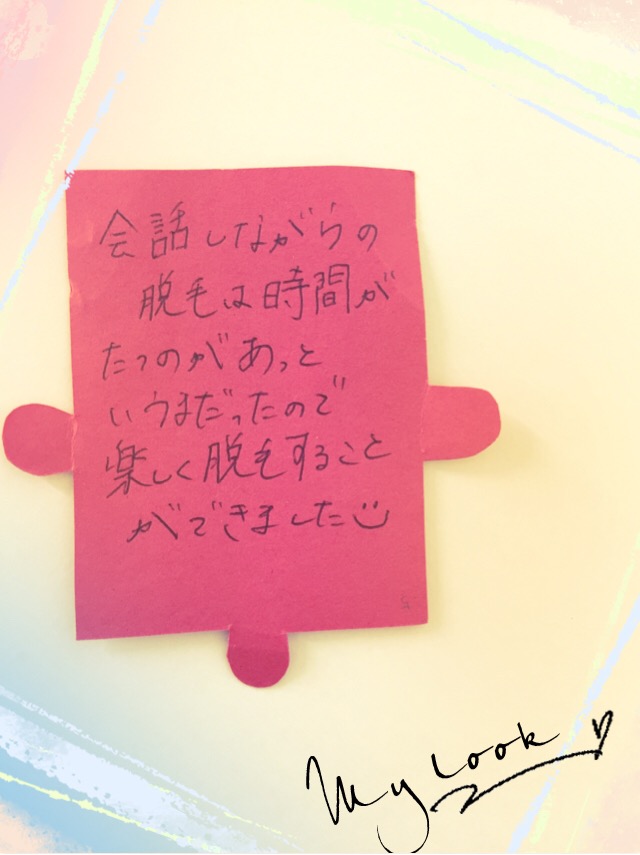 会話しながらの
脱毛は時間が
たつのがあっと
いうまだったので
楽しく脱毛すること
ができました
My Look